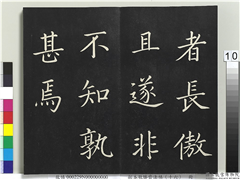 者長傲
且遂非
不知孰
甚焉
10